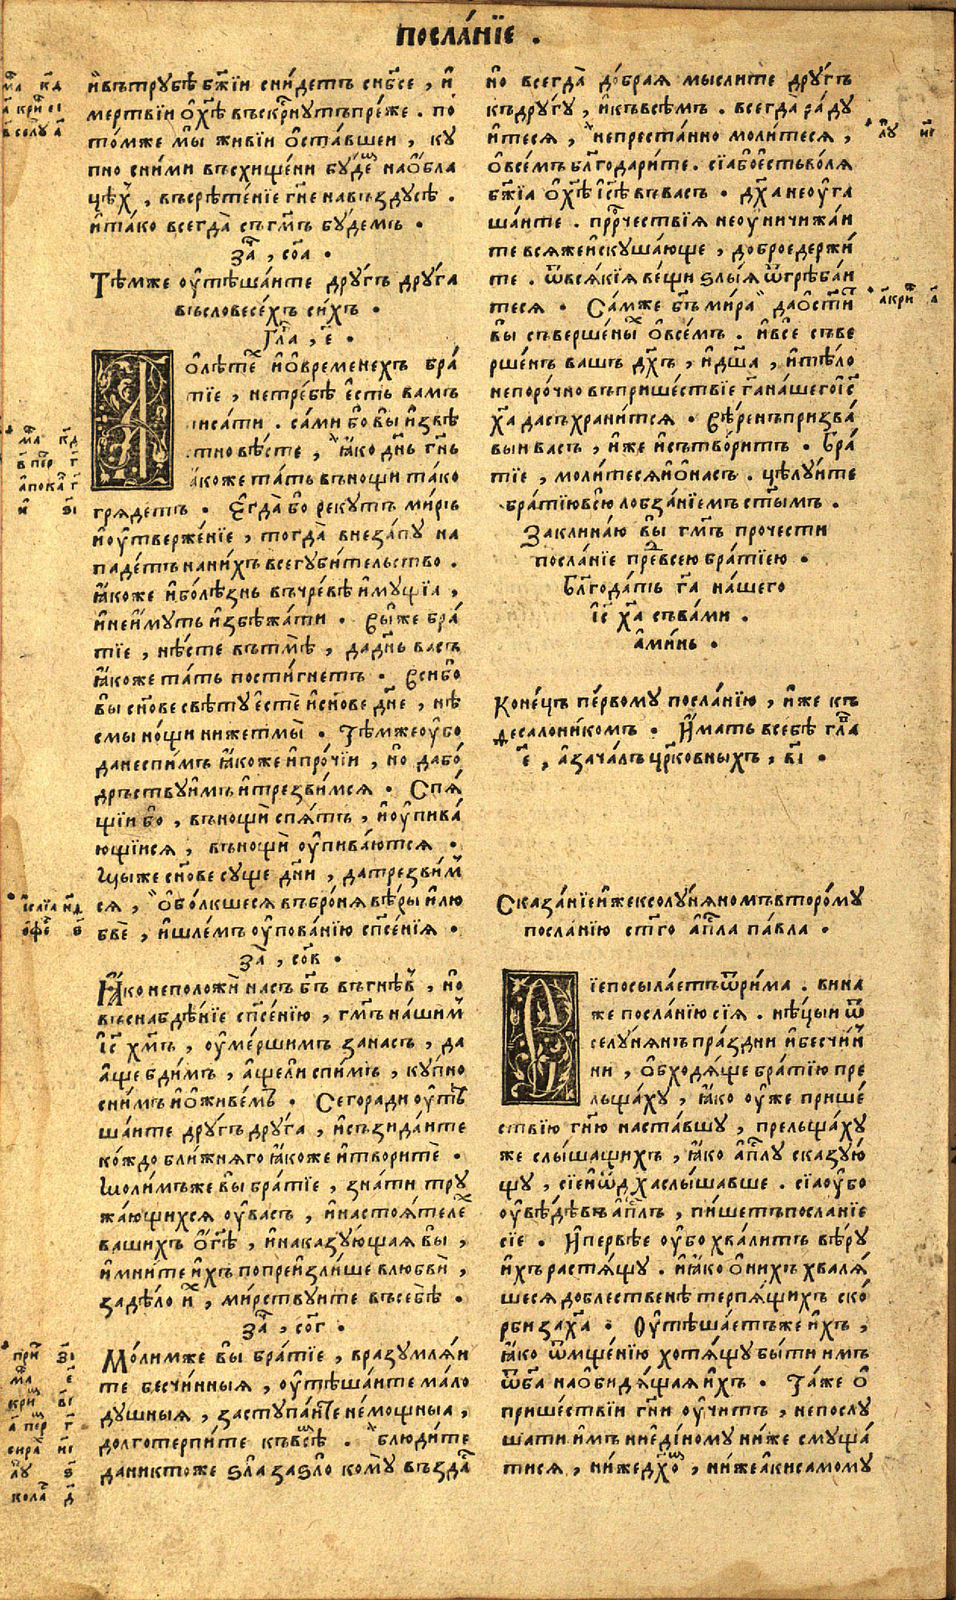 посла́нїе .
и҆втрꙋбѣ бж҃їи сни́детъ снб҃се , и҆
мертвїи ѻ҆хⷭ҇ѣ въскрⷭ҇нꙋтъпрѣже . по
то́мже мы̀ живїи ѻ҆ста́вшеи , кꙋ
пно сни́ми въсхищени бꙋдеⷨ҇ наѻ҆бла
цѣхъ , въсрѣ́тенїе гн҃е навъздꙋсѣ .
и҆та́ко всегда̀ съгмⷭ҇ъ бꙋ́демъ .
за҃ , соа .
Тѣ́мже оу҆тѣша́ите дрꙋ́гъ дрꙋ́га
въсловесе́хъ си́хъ .
Гла҃ , е҃ .
ѻ҆лѣ́теⷯ и҆ѻ҆временехъ бра́
тїе , нетре́бѣ є҆сть вамъ
писа́ти . сами бо вы̀ и҆звѣ́
стновѣ́сте , ꙗ҆ко дн҃ь гн҃ь
ꙗ҆коже та́ть внощи та́ко
гряде́тъ . Є҆гда̀ бо рекꙋ́тъ ми́ръ
и҆оу҆твержє́нїе , тогда̀ внеза́пꙋ на
паде́тъ нани́хъ всегꙋби́тельство .
ꙗ҆коже и҆болѣ́знь въчре́вѣ и҆мꙋщїа ,
и҆неи҆мꙋтъ и҆збѣжа́ти . Вы́же бра́
тїе , нѣ́сте вътмѣ̀ , дадн҃ь ва́съ
ꙗ҆коже та́ть пости́гнетъ . Вси́бо
вы̀ сн҃ове свѣ́тꙋ є҆стѐ и҆сн҃ове дн҃е , нѣ́
смы но́щи нижетмы̀ . Тѣ́мжеоу҆бо
данеспи́мъ ꙗ҆коже и҆про́чїи , но дабо́
дръствꙋи҆мъ и҆трезви́мся . Спя́
щїи бо , въно́щи спя́тъ , и҆оу҆пива́
ющїися , въно́щи оу҆пива́ются .
Мы́же сн҃ове сꙋще дн҃и , датрезви́м
ся , ѻ҆бо́лкшеся въбро́ня вѣ́ры и҆лю
бвѐ , и҆шле́мъ оу҆пова́нїю спⷭ҇е́нїя .
за҃ , сов .
Ꙗ҆́ко неположѝ на́съ бг҃ъ въгнѣ́в , но
въснабдѣ́нїе спⷭ҇е́нїю , гмⷭ҇ъ на́шим
іс҃ хм҃ъ , оу҆ме́ршимъ зана́съ , да
а҆ще бди́мъ , а҆щели спи́мъ , кꙋ́пно
сни́мъ и҆ѻ҆живе́мъ . Сегоради оу҆тѣ
ша́ите дрꙋ́гъ дрꙋ́га , и҆съзида́ите
ко́ждо бли́жняго ꙗ҆коже и҆творитѐ .
Молимъже вы̀ бра́тїе , зна́ти трꙋ
жа́ющихся оу҆ва́съ , и҆настоя́теле
вашихъ ѻ҆гⷭ҇ѣ , и҆наказꙋ́ющая вы̀ ,
и҆мнитеи҆хъ попреи҆зли́ше влюбвѝ ,
задѣ́ло и҆х , ми́рствꙋите въсебѣ̀ .
за҃ , сог .
Мо́лимже вы̀ бра́тїе , вразꙋмля́и
те бесчинныя , оу҆тѣша́ите ма́ло
дꙋ́шныя , застꙋпа́ите не́мощныа ,
долготерпи́те къвсѣ . блюди́те
даниктоже ѕла заѕло комꙋ възда
но всегда̀ до́брая мы́слите дрꙋ́гъ
къдрꙋ́гꙋ , и҆къвсѣ́мъ . всегда̀ ра́дꙋ
и҆теся , непреста́нно моли́теся ,
ѻ҆всѣ́мъ блг҃одари́те . сїабоє҆стьво́ля
бж҃їа ѻ҆хⷭ҇ѣ і҆сⷭ҇ѣ въвасъ . дх҃а неоу҆га
ша́ите . прⷪ҇рчествїя неоу҆ничижа́и
те всяжеи҆скꙋша́юще , доброедержи́
те . ѿвся́кїя ве́щи ѕлы́я ѿгреба́и
теся . Са́мже бг҃ъ ми́ра даѻ҆сти́тъ
вы̀ съвершены ѻ҆все́мъ . и҆всѐ съве
ршенъ вашъ дх҃ъ , и҆дш҃а , и҆тѣло
непоро́чно въприше́ствїе га҃нашегоіс҃
ха҃ дасъхрани́тся . Вѣ́ренъпризва́
выи васъ , и҆же и҆сътвори́тъ . Бра́
тїе , моли́теся и҆ѻ҆насъ . цѣлꙋ́ите
братїювсю лобза́нїемъ ст҃ымъ .
Заклина́ю вы̀ гмⷭ҇ъ прочести
посла́нїе превсею бра́тїею .
Блг҃ода́ть га҃ на́шего
іс҃ ха҃ съва́ми .
а҆ми́нь .
Коне́цъ пе́рвомꙋ посла́нїю , и҆же къ
десалони́комъ . И҆мать всебѣ̀ гла҃
е҃ , азача́лъ црк҃овныхъ , ві҃ .
Сказа́нїеи҆жексолꙋ́няномъвторо́мꙋ
посла́нїю ст҃го а҆пⷭ҇ла па́вла .
їепосыла́етъѿри́ма . вина
же посла́нїю сїя . нѣ́цыи ѿ
селꙋ́нянъ пра́здни и҆бесчи́н
ни , ѻ҆бходя́ще бра́тїю пре
льща́хꙋ , ꙗ҆ко оу҆же прише́
ствїю гн҃ю наста́вшꙋ , прельща́хꙋ
же слы́шащихъ , ꙗ҆ко а҆пⷭ҇лꙋ сказꙋю́
щꙋ , сїеи҆ѿд ха слы́шавше . сїаоу҆бо
оу҆вѣ́дѣвъ а҆пⷭ҇лъ , пи́шетъпосла́нїе
сїе . И҆пе́рвѣе оу҆бо хва́литъ вѣ́рꙋ
и҆хъ растя́щꙋ . и҆ꙗ҆ко ѻ҆ни́хъ хваля́
шеся доблественѣ терпя́щихъ ско́
рби заха҃ . Оу҆тѣша́етъже и҆хъ ,
ꙗ҆ко ѿмще́нїю хотя́щꙋ бы́ти имъ
ѿба наѻ҆бидя́щая и҆хъ . Та́же ѻ҆
прише́ствїи гн҃и оу҆чи́тъ , непослꙋ
шати и҆мъ ниєди́номꙋ ни́же смꙋща́
тися , ни́жедх҃ѻ , ни́жеа҆кисамомꙋ